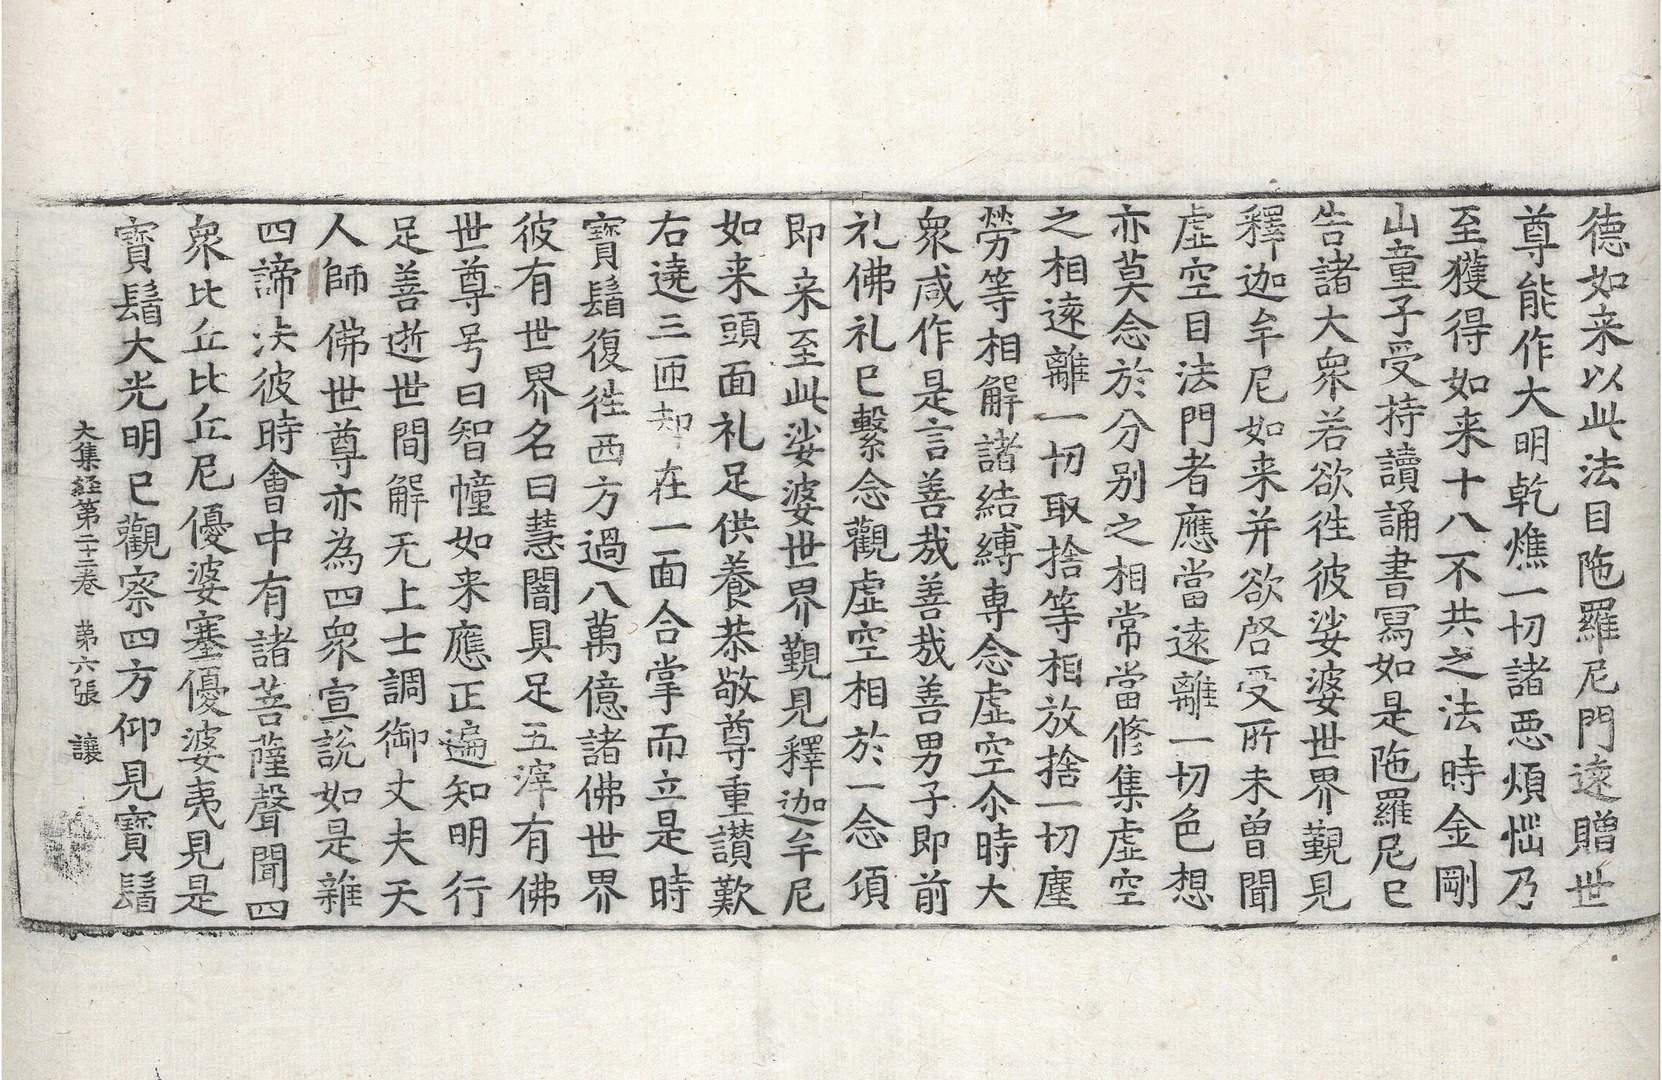 德如来以此法目陁羅尼門遠贈世
尊能作大明乾燋一切諸惡煩惱乃
至獲得如来十八不共之法時金剛
山童子受持讀誦書寫如是陁羅尼已
告諸大衆若欲徃彼娑婆世界覲見
釋迦牟尼如来并欲啓受所未曾聞
虛空目法門者應當遠離一切色想
亦莫念於分别之相常當修集虛空
之相遠離一切取捨等相放捨一切塵
勞等相解諸結縛專念虛空尒時大
衆咸作是言善哉善哉善男子即前
礼佛礼已繫念觀虛空相於一念須
即来至此娑婆世界覲見釋迦牟尼
如来頭面礼足供養恭敬尊重讃歎
右遶三匝却在一面合掌而立是時
寶鬘復徃西方過八萬億諸佛世界
彼有世界名曰慧闇具足五滓有佛
世尊号曰智幢如来應正遍知明行
足善逝世間解无上士調御丈夫天
人師佛世尊亦為四衆宣說如是雜
四諦法彼時會中有諸菩薩聲聞四
衆比丘比丘尼優婆塞優婆夷見是
寶鬘大光明已觀察四方仰見寶鬘
大集経第二十三卷 第六張 讓